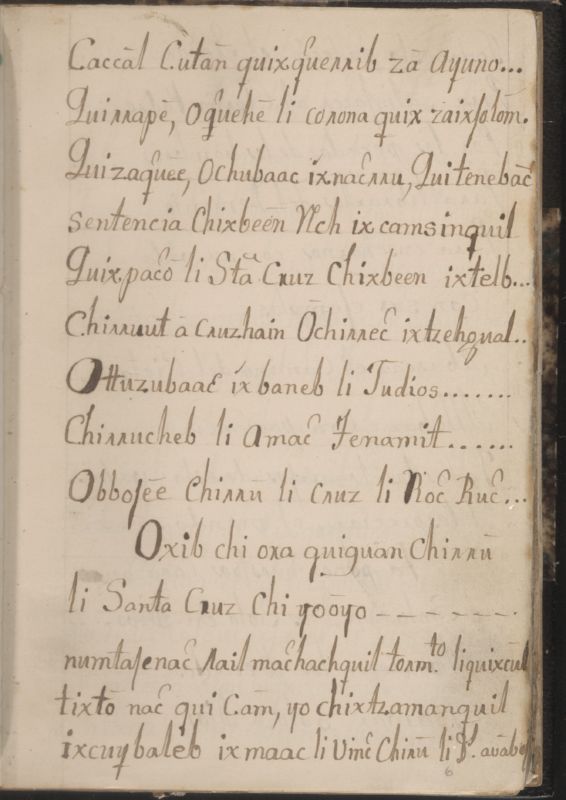 Caccāl Cutān quixq̄uerrib zā Ayuno...
Quirrapē, Oq̄uehē li corona quix zaixsolōm.
Quizaq̄uēē, Ochubaac ixnac̄rru, Quitenebac̄
sentencia Chixbeēn Nch ixcamsinquil
Quixpac̄ō li Stā Cruz Chixbeen ixtelb...
Chirruut ā cruzhain Ōchirrec̄ ixtzehqual..
Ottuzubaac̄ ix baneb li Judios.......
Chirrucheb li Amac̄ Tenamit......
Obbosēē Chirrū li Cruz li Roc̄ Ruc̄...
Oxib chi ora quiguān Chirrū
li Santa Cruz Chi yoōyo - - - - - -
numtasenac̄ rail mac̄hachquil torm.to liquixcul
tixtō nac̄ qui Cām, yo chixtzamanquil
ixcuybalēb ixmaac li Uinc̄ Chirū li
6